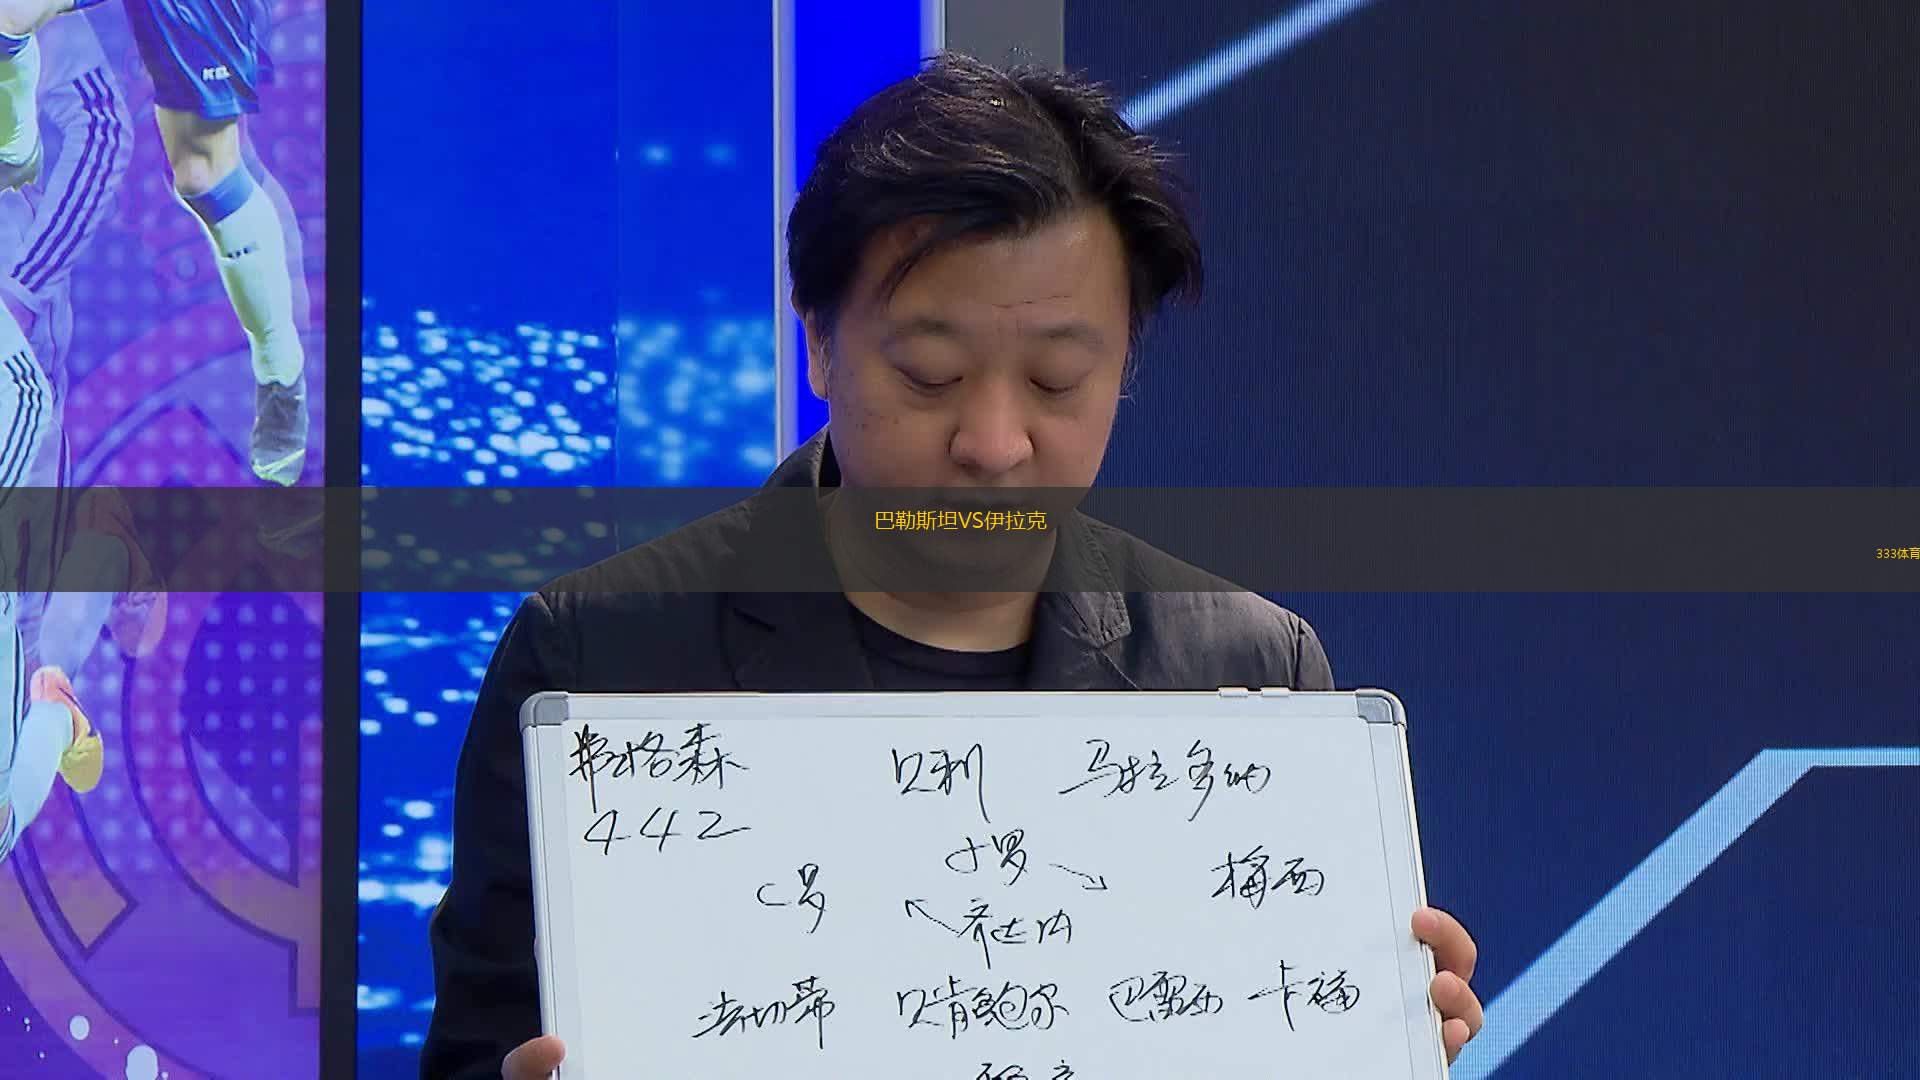 巴勒斯坦VS伊拉克
333体育
弗格森 贝利 马拉多纳
442
小罗
C罗 梅西
齐达内
法切蒂 贝肯鲍尔 巴雷西 卡福